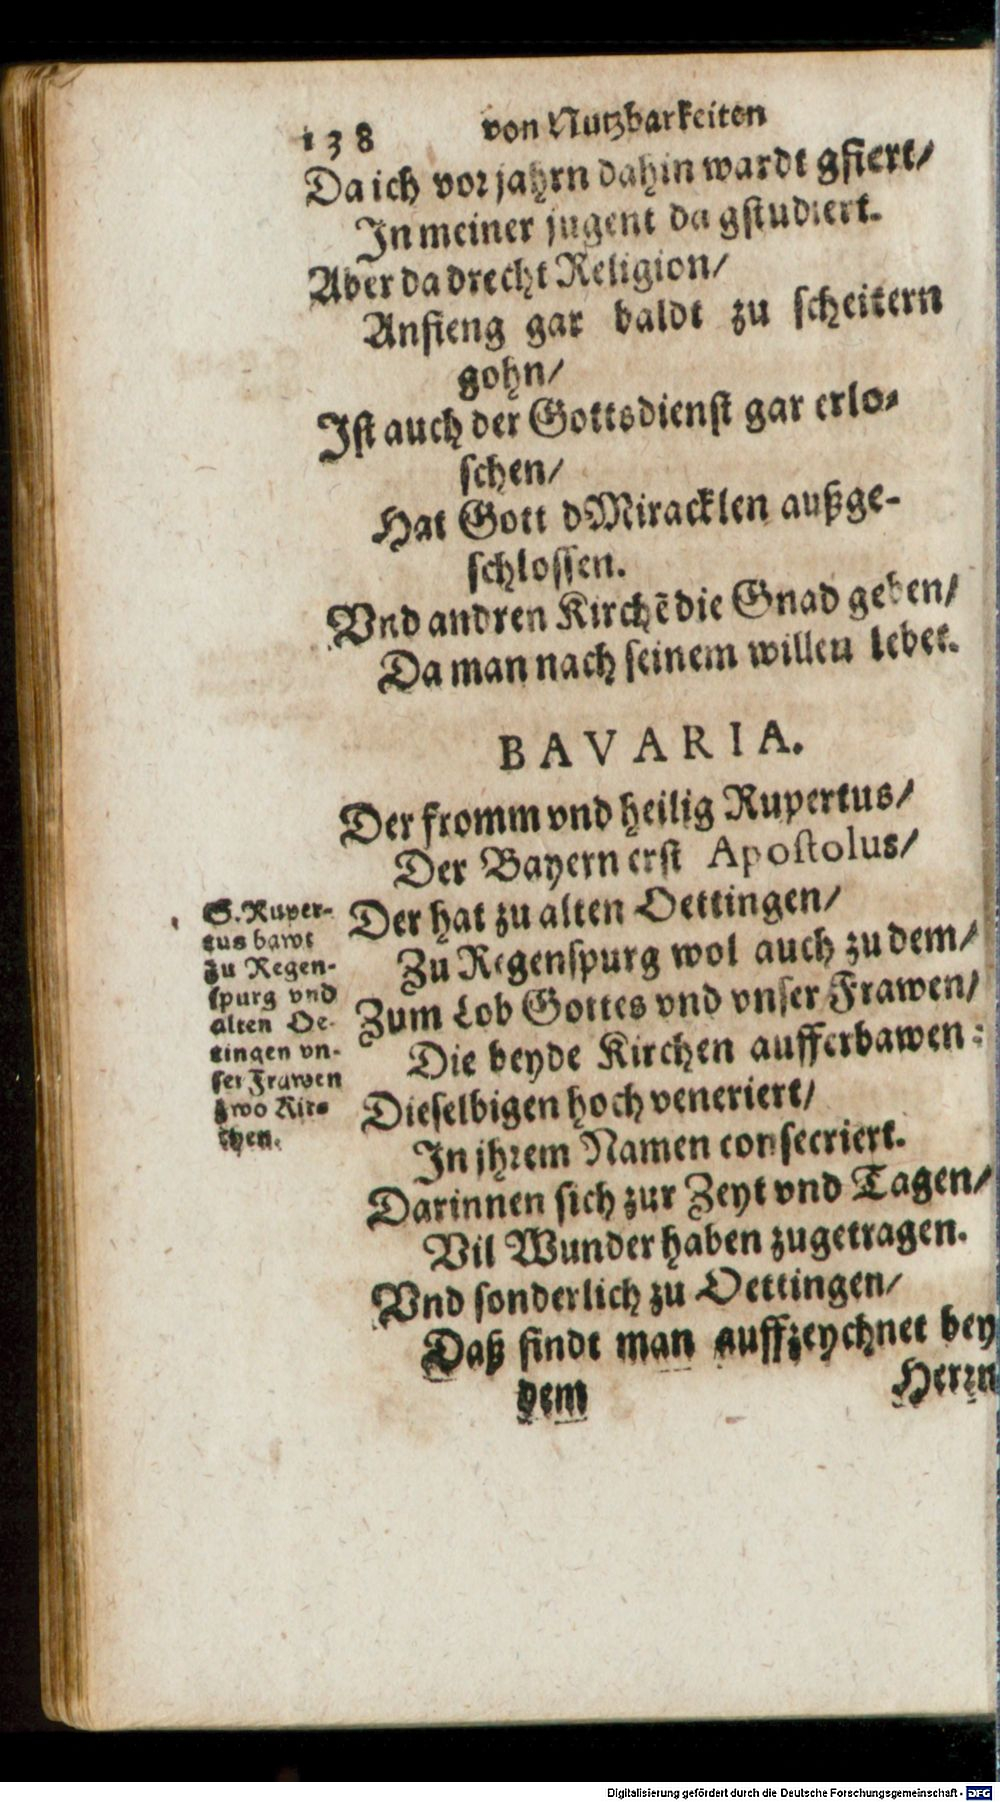 138 von Nutzbarkeiten
Da ich vor jahrn dahin wardt gfiert/
In meiner jugent da gstudiert.
Aber da drecht Religion/
Anfieng gar baldt zu scheitern
gohn/
Ist auch der Gottsdienst gar erlo-
schen/
Hat Gott dMiracklen außge-
schlossen.
Vnd andren Kirchẽ die Gnad geben/
Da man nach seinem willen lebet.
BAVARIA.
Der fromm vnd heilig Rupertus/
Der Bayern erst Apostolus/
Der hat zu alten Oettingen/
Zu Regenspurg wol auch zu dem/
Zum Lob Gottes vnd vnser Frawen/
Die beyde Kirchen aufferbawen:
Dieselbigen hoch veneriert/
In jhrem Namen consecriert.
Darinnen sich zur Zeyt vnd Tagen/
Vil Wunder haben zugetragen.
Vnd sonderlich zu Oettingen/
Daß findt man auffzeychnet bey
dem Herrn
S. Ruper-
tus bawt
zu Regen-
spurg vnd
alten Oe-
tingen vn-
ser Frawen
zwo Kir-
chen.
Digitalisierung gefördert durch die Deutsche Forschungsgemeinschaft - DFG